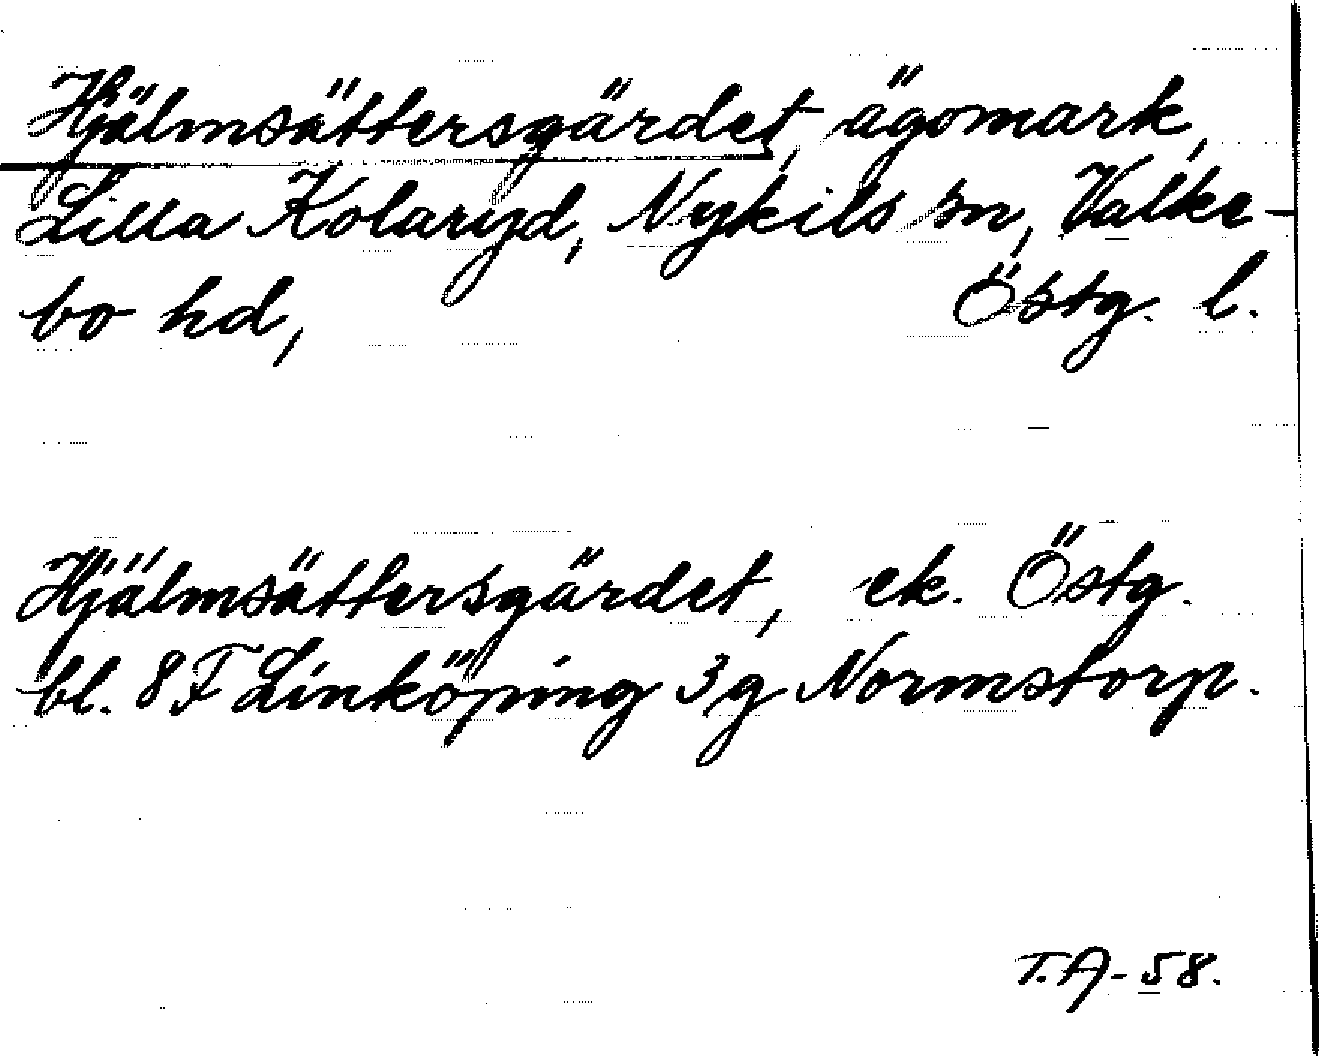 Hjälmsättersgärdet, ägomark,
Lilla Kolaryd, Nykils sn, Valke-
bo hd, Östg. l.
Hjälmsättersgärdet, ek. Östg.
bl. 8 F Linköping 3 g Normstorp.
T.A-58.